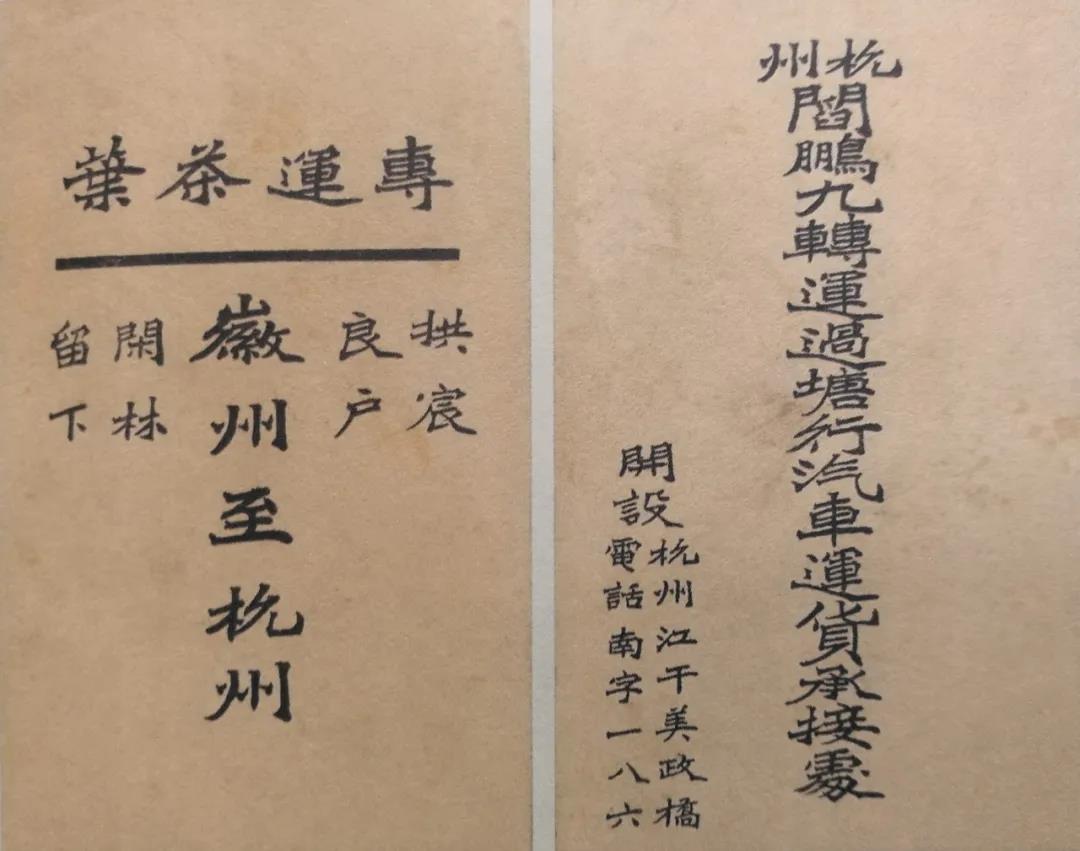 杭州
閻鵬九轉運過塘行汽車運貨承接處
開設
杭州江干美政橋
電話南字一八六
專運茶葉
拱宸
良户
徽州至杭州
閑林
留下